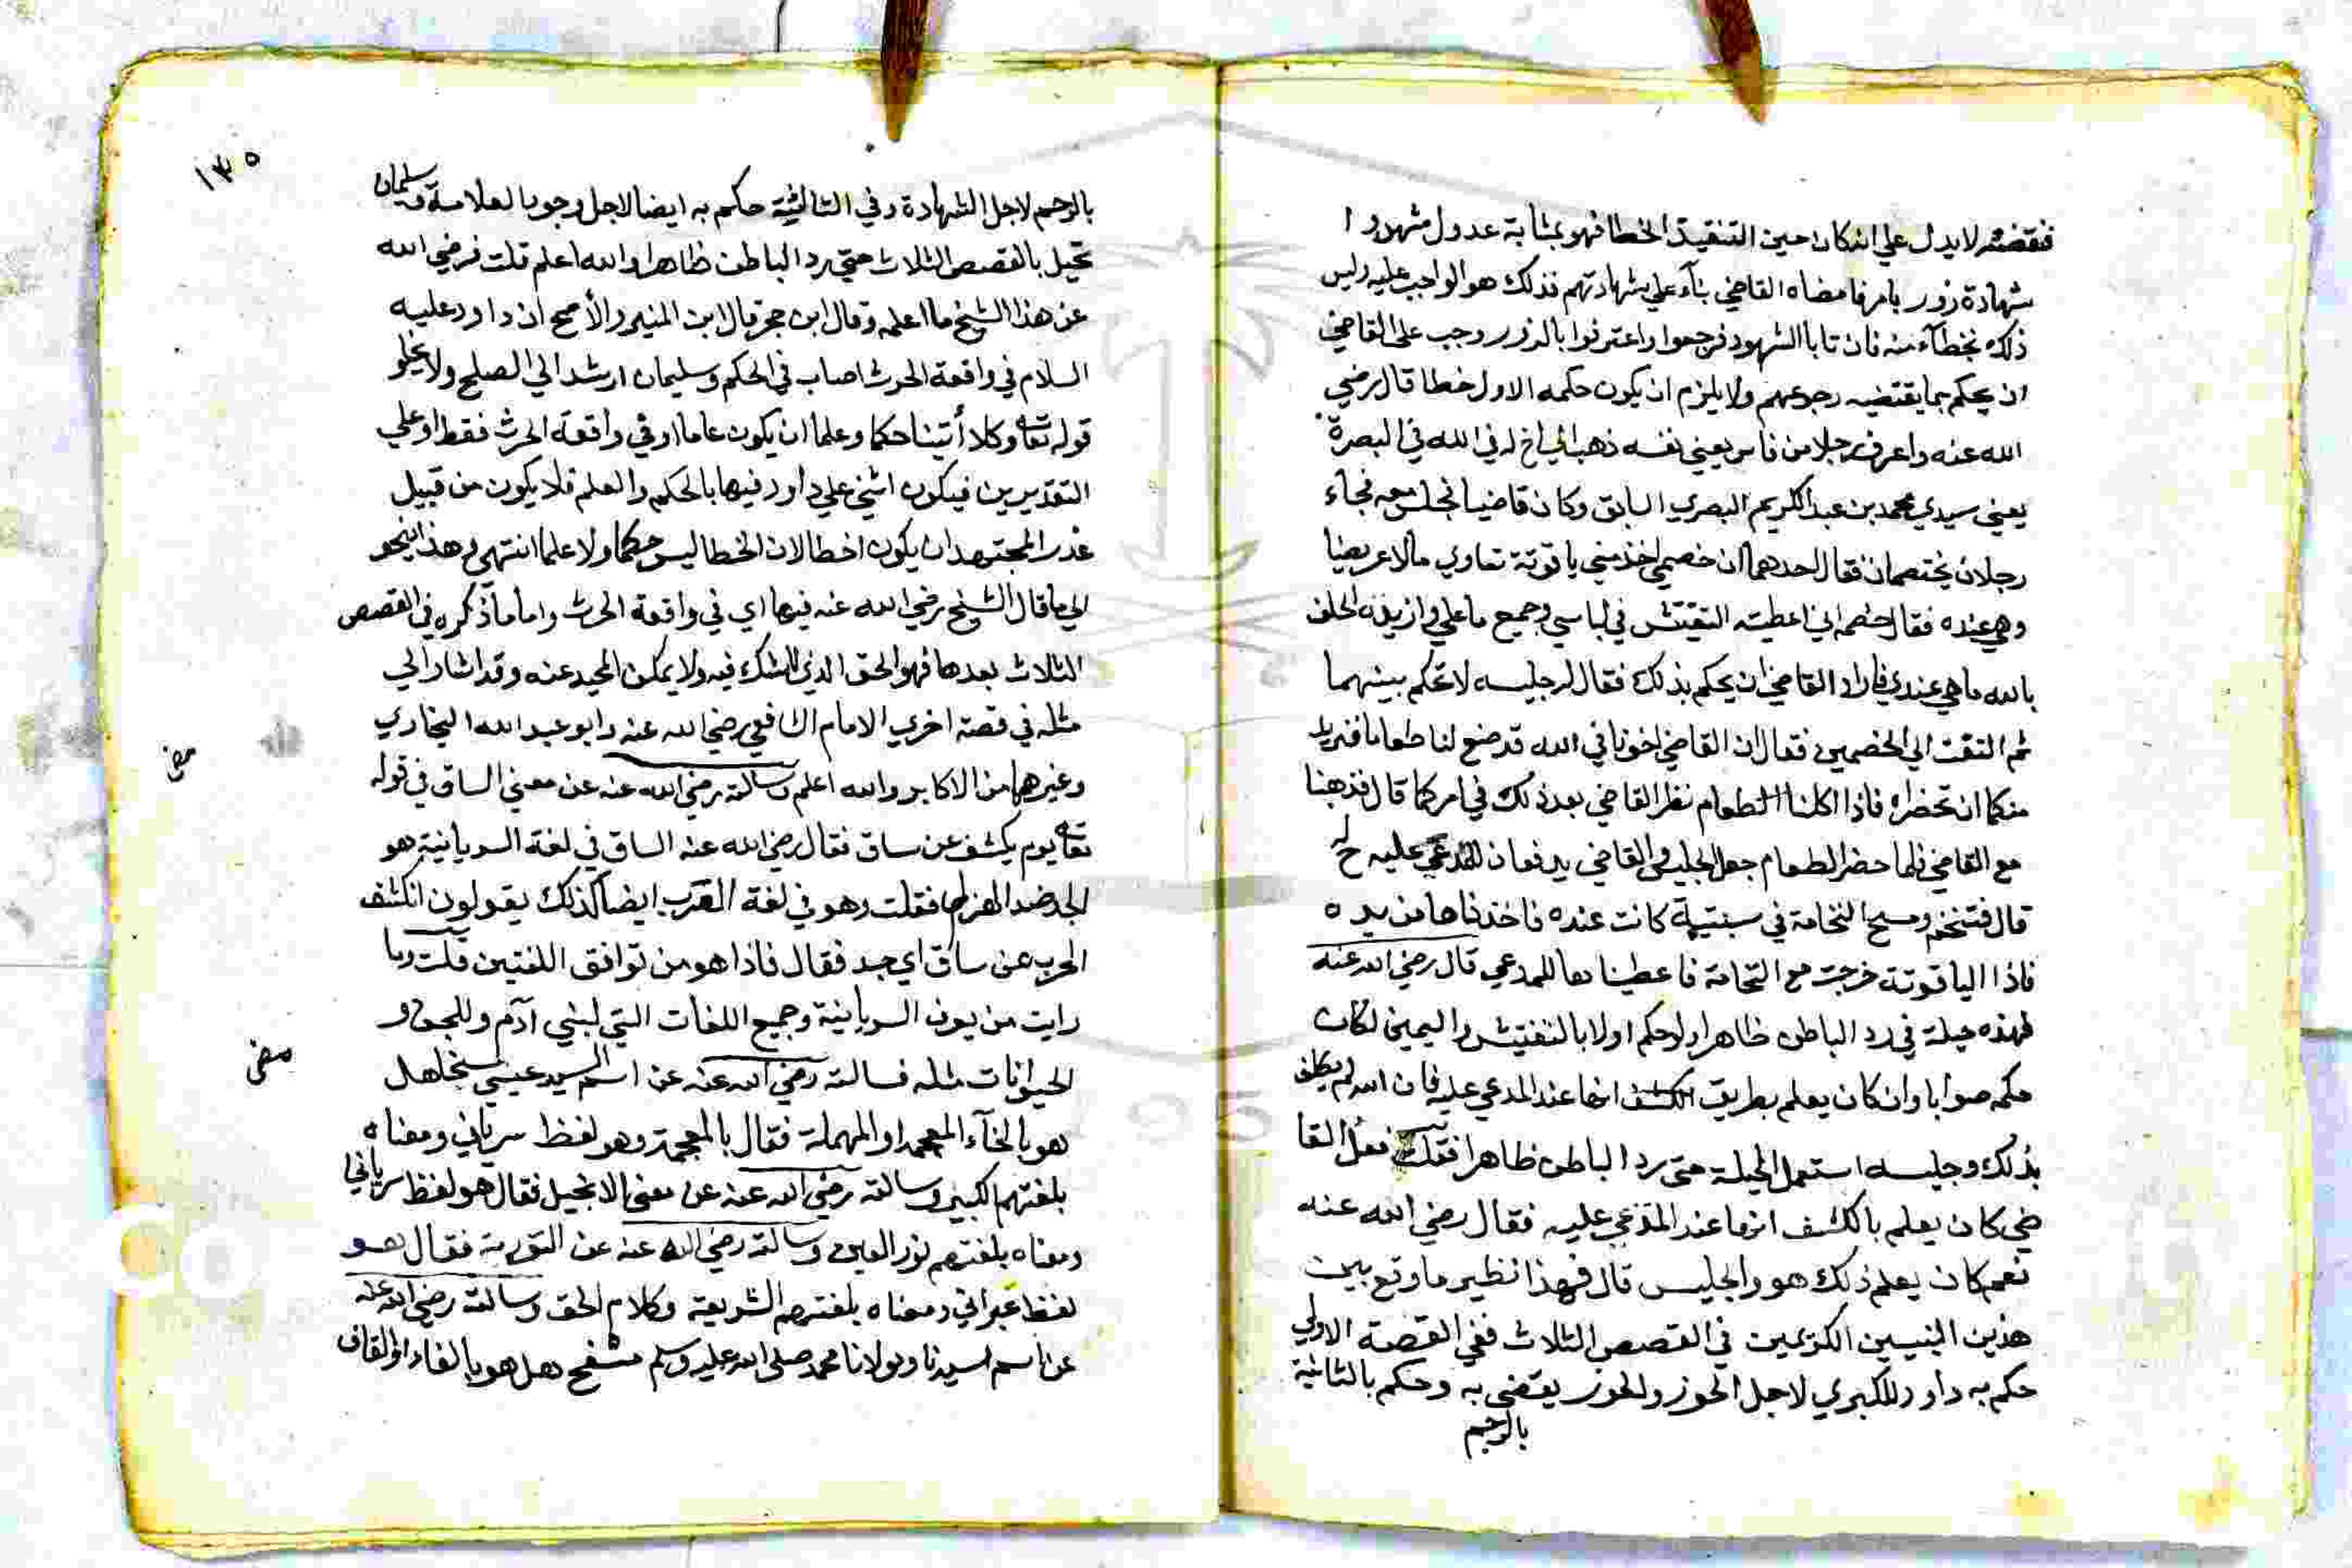 فنقضه لا يدل علي انه كان حين التنفيذ الخطا فهو بمثابة عدول شهدوا
شهادة زور بامر فامضاه القاضي بنآء علي شهادتهم فذلك هو الواجب عليه وليس
ذلك بخطآء منه فان تابا الشهود فرجعوا واعترفوا بالزور وجب علي القاضي
ان يحكم بما يقتضيه رجوعهم ولا يلزم ان يكون حكمه الاول خطا قال رضي
الله عنه واعرف رجلا من فاس يعني نفسه ذهب الي اخ له في الله في البصرة
يعني سيدي محمد بن عبد الكريم البصري السابق وكان قاضيا فجلس معه فجاء
رجلان يختصمان فقال احدهما ان خصمي اخذ مني ياقوتة تساوي مالا عريضا
وهي عنده فقال خصمه اني اعطيته التفتش في لباسي وجميع ما علي وازيده الحلف
بالله ما هي عندي فاراد القاضي ان يحكم بذلك فقال له جليسه لا تحكم بينهما
ثم التفت الي الخصمين فقال ان القاضي اخونا في الله قد صنع لنا طعاما فنريد
منكما ان تحضراه فاذا اكلنا الطعام نظر القاضي بعد ذلك في امركما قال فذهبنا
مع القاضي فلما حضر الطعام جعل الجليس والقاضي يدفعان للمدعي عليه
قال فتنخم ومسح النخامة في سبنية كانت عنده فاخذناها من يده
فاذا الياقوتة خرجت مع النخامة فاعطيناها للمدعي قال رضي الله عنه
فهذه حيلة في رد الباطن ظاهرا ولو حكم اولا بالتفتيش واليمين لكان
حكمه صوابا وان كان يعلم بطريق الكشف انها عند المدعي عليه فان الله لم يكلف
بذلك وجليسه استعمل الحيلة حتي رد الباطن ظاهرا فقلت فعل القا
ضي كان يعلم بالكشف انها عند المدعي عليه فقال رضي الله عنه
نعم كان يعلم ذلك هو والجليس قال فهذا نظير ما وقع بين
هذين النبيين الكريمين في القصص الثلاث ففي القصة الاولي
حكم به داود للكبري لاجل الحوز والحوز يقضي به وحكم بالثانية
بالرجم
١٣٥
بالرجم لاجل الشهادة وفي الثالثة حكم به ايضا لاجل وجوب العلامة وسليمان
تحيل بالقصص الثلاث حتي رد الباطن ظاهرا والله اعلم قلت فرضي الله
عن هذا الشيخ ما اعلمه وقال ابن حجر قال ابن المنير والأصح ان داود عليه
السلام في واقعة الحرث اصاب في الحكم وسليمان ارشد الي الصلح ولا يخلو
قوله تعا وكلا أتينا حكما وعلما ان يكون عاما او في واقعة الحرث فقط وعلي
التقديرين فيكون اثني علي داود فيها بالحكم والعلم فلا يكون من قبيل
عذر المجتهد ان يكون اخطا لان الخطا ليس حكما ولا علما انتهي وهذا ينحو
الي ما قال الشيخ رضي الله عنه فيها اي في واقعة الحرث واما ما ذكره في القصص
الثلاث بعدها فهو الحق الذي لا شك فيه ولا يمكن المحيد عنه وقد اشار الي
مثله في قصة اخري الامام الشافعي رضي الله عنه وابو عبد الله البخاري
وغيرهما من الاكابر والله اعلم وسالته رضي الله عنه عن معني الساق في قوله
تعا يوم يكشف عن ساق فقال رضي الله عنه الساق في لغة السريانية هو
الجد ضد الهزل فقلت وهو في لغة العرب ايضا كذلك يقولون انكشف
الحرب عن ساق اي جد فقال فاذا هو من توافق اللغتين قلت وما
رايت من يعرف السريانية وجميع اللغات التي لبني آدم وللجن و
الحيوانات مثله فسالته رضي الله عنه عن اسم السيد عيسي مشيخا هل
هو بالخآء المعجمه او المهملة فقال بالمعجمة وهو لفظ سرياني ومعناه
بلغتهم الكبير وسالته رضي الله عنه عن معني الانجيل فقال هو لفظ سرياني
ومعناه بلغتهم نور العين وسالته رضي الله عنه عن التورية فقال هو
لفظ عبراني ومعناه بلغتهم الشريعة وكلام الحق وسالته رضي الله عنه
عن اسم سيدنا ومولانا محمد صلي الله عليه وسلم مشفح هل هو بالفاء او القاف